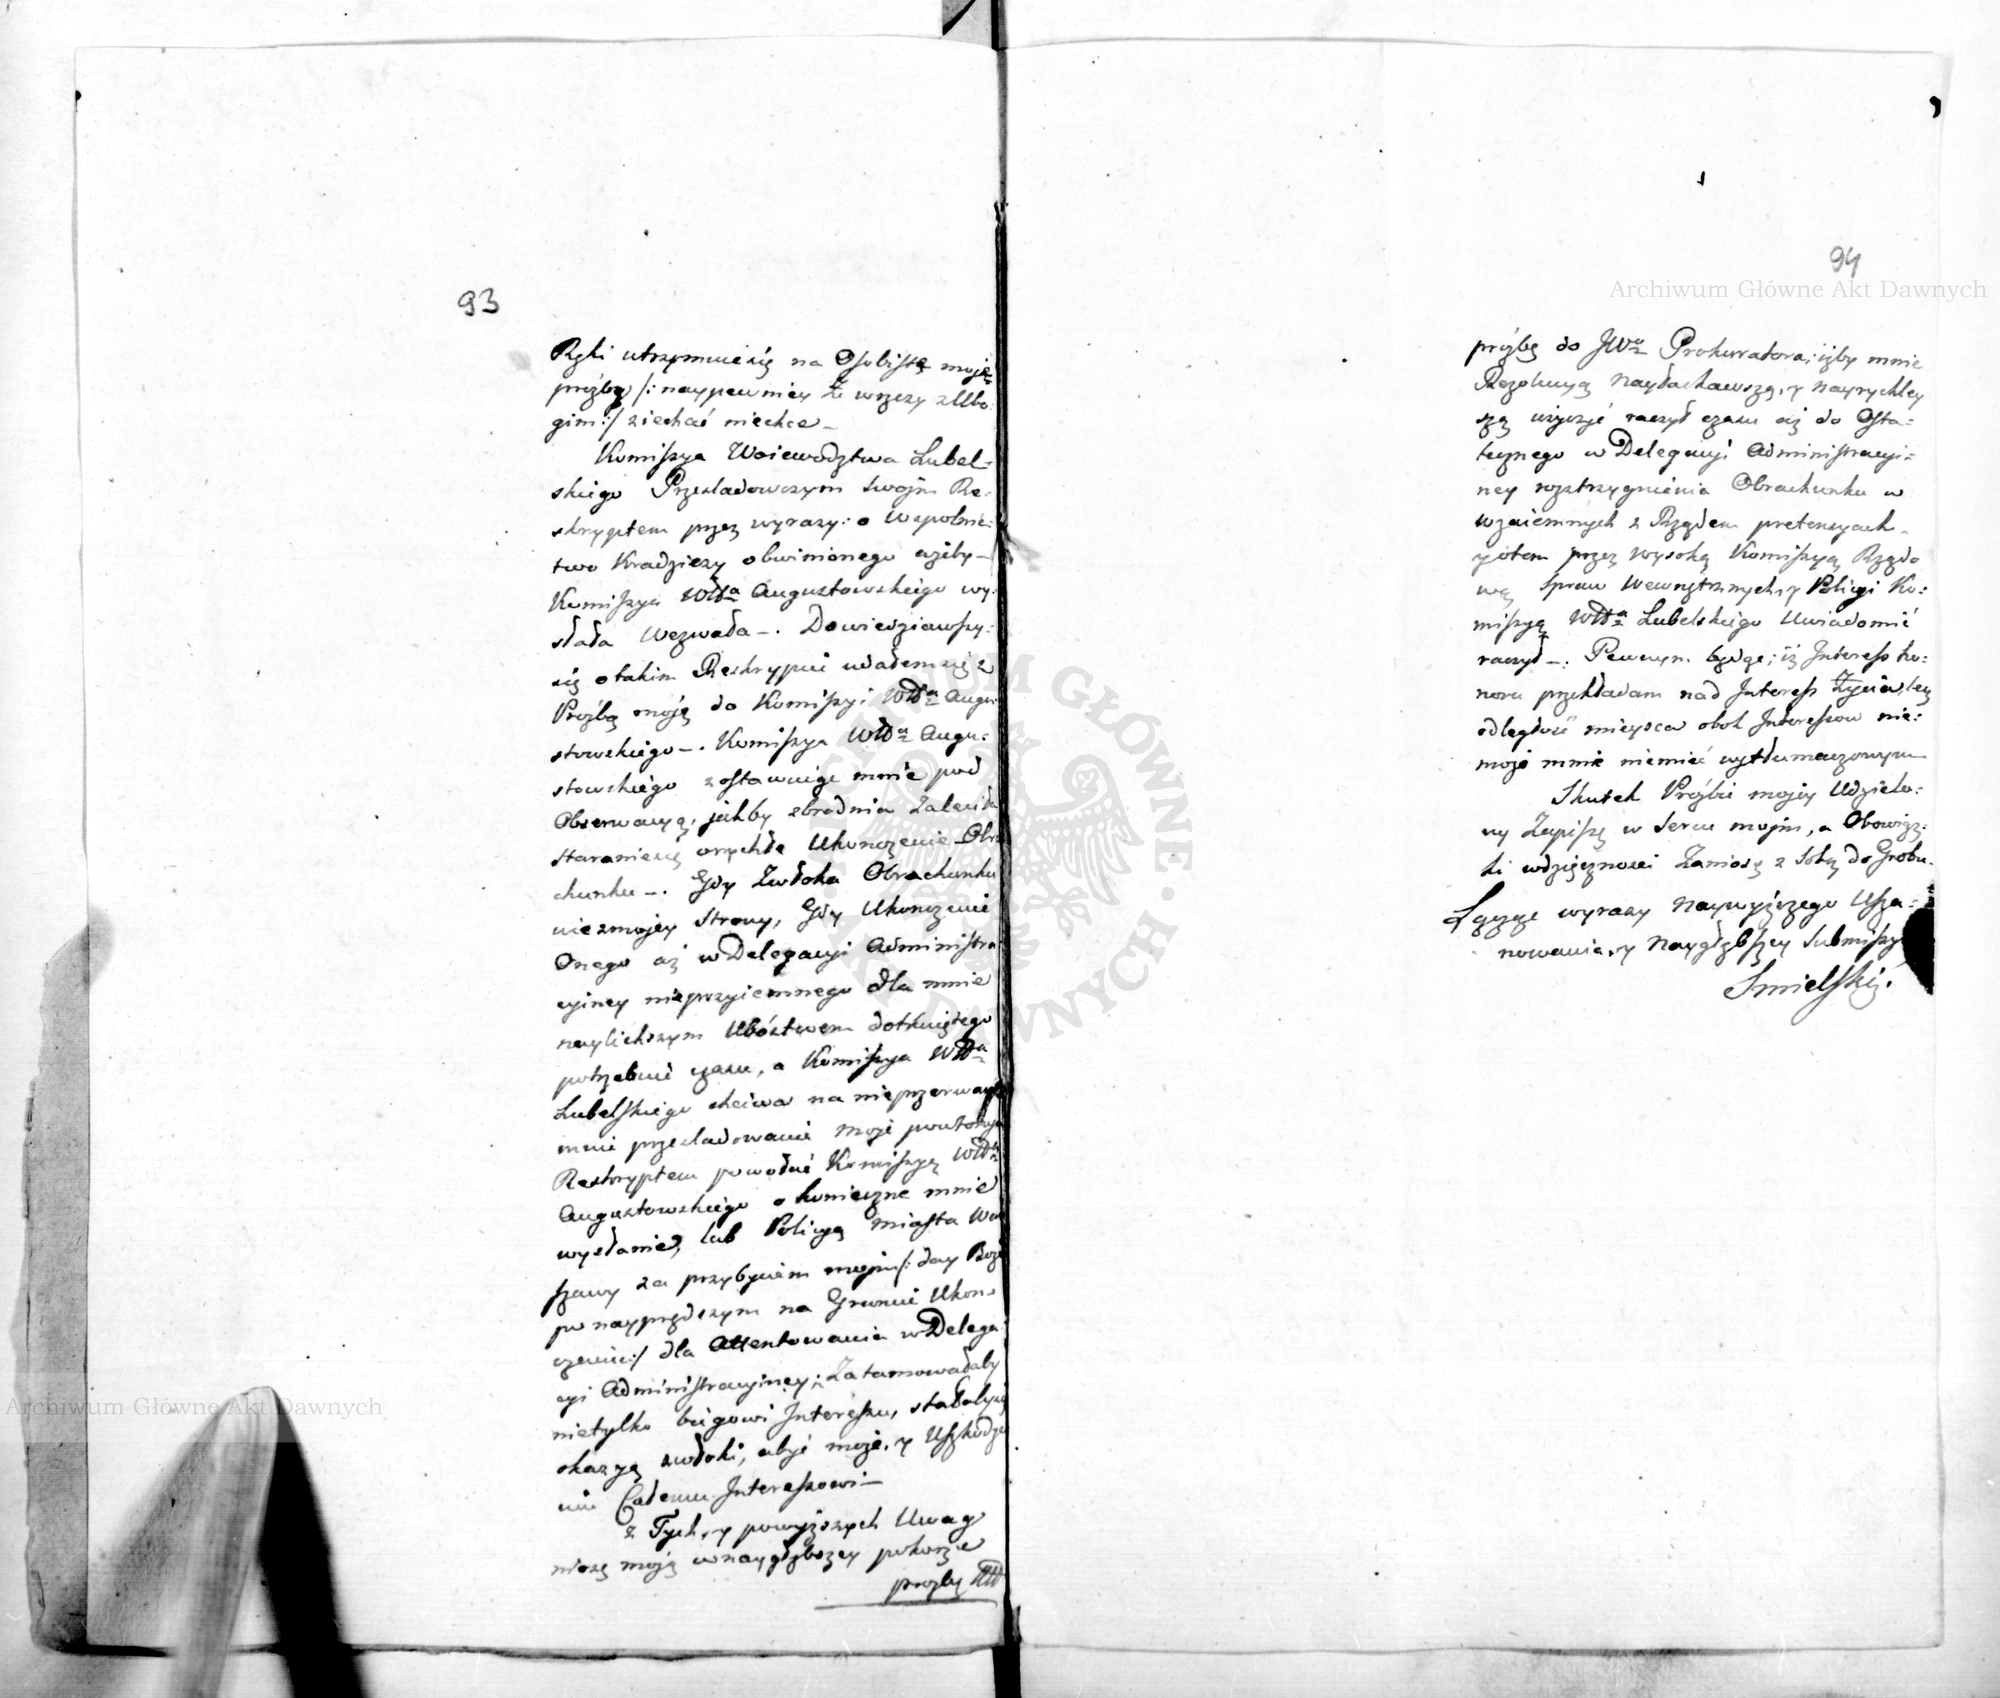 93
Ręki utrzymuie się na Osobistą moję
prożbę /: naypewniey Że wrzeszy zUbo-
gim :/ ziechać niechce —
Komissya Woiewodztwa Lubel-
skiego Prześladowczym swojm Re-
skryptem przez wyrazy: o wspolnic-
two Kradzieży obwinionego ażeby —
Komissya Wdtwa Augustowskiego wy-
słała wezwała —. Dowiedziawszy-
się o takim Reskrypcie udałem się z
Proźbą moją do Komissyi Wdtwa Augu-
stowskiego —. Komissya Wdtwa Augu-
stowskiego zostawuige mnie pod
Obserwacyą, jakby zbrodnia zaleciła
staranie się orychłe Ukonczenie Obra
chunku —. Gdy Zwłoka Obrachunku
nie zmojey strony, Gdy Ukonczenie
Onego aż w Delegacyi Administra
cyiney nieprzyiemnego dla mnie
naylichszym Ubóstwem dotkniętego
potrzebuie czasu, a Komissya Wdtwa
Lubelskiego chciwa na nieprzerwane
mnie prześladowanie moje powtornym
Reskryptem powołać Komissyą Wdtwa
Augustowskiego o konieczne mnie
wysłanie, lub Policyą miasta War
szawy za przybyciem mojm /: day Boże
po nayprędszym na Gruncie Ukon-
czeniu :/ dla Attentowania w Delega
cyi Administracyiney; Zatamowałaby
nietylko biegowi Interessu, stałabysię
okazyą zwłoki, abyć może, y Uszkodze
niu Całemu Interessowi —
z Tych, y powyższych Uwag
niosę moją w naygłębszey pokorze
prozbę JW
94
prożbę do JWo Prokuratora; iżby mnie
Rezolucyą nayłaskawszą, y nayrychley
szą użyczyć raczył czasu aż do Osta-
tecznego w Delegacyi Administracyi-
ney rozstrzygnienia Obrachunku w
wzaiemnych z Rządem pretensyach —
y otem przez wysoką Komissyą Rządo
wą Spraw Wewnętrznych, y Policyi Ko-
missyą Wdtwa Lubelskiego Uwiadomić
raczył —. Pewnym będąc; iż Interess ho-
noru przekładam nad Interess Życia, lecz
odległość mieysca obok Interessow nie-
może mnie niemieć wytłumaczonym
Skutek Prożbie mojey Udzielo-
ny Zapiszę w Sercu mojm, a Obowiąz-
ki wdzięcznosci Zaniosę z Sobą do Grobu.
Łącząc wyrazy Naywyższego Usza-
nowania, y Naygłębszey Submissyi
Smielskij.
Archiwum Główne Akt Dawnych
Archiwum Główne Akt Dawnych
ARCHIWUM GŁÓWNE AKT DAWNYCH